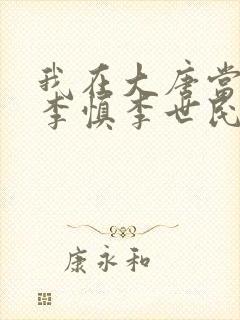 我在大唐当
李慎李世民
康永和